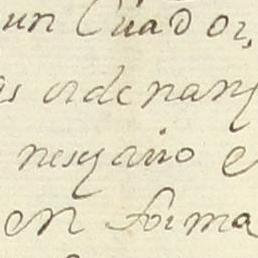 un Cuador,
as ordenanz
nesyario e
en forma